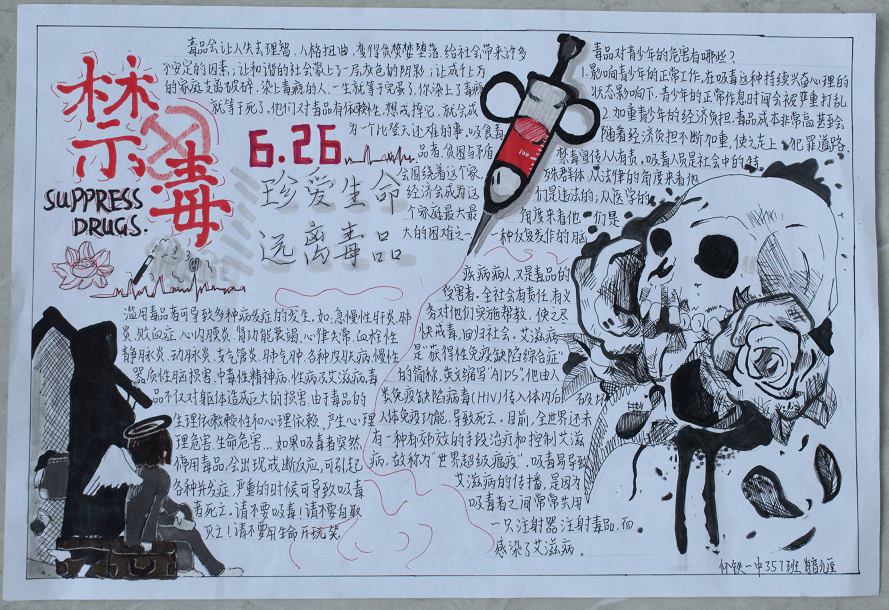 禁毒
SUPPRESS
DRUGS.
6.26
珍爱生命
远离毒品
毒品会让人失去理智、人格扭曲,变得贪婪堕落,给社会带来许多
不安定的因素;让和谐的社会蒙上了一层灰色的阴影;让成千上万
的家庭支离破碎,染上毒瘾的人,一生就等于完蛋了,你染上了毒瘾
就等于死了,他们对毒品有依赖性,想戒掉它,就会成
为一个比登天还难的事,吸食毒
品者,贫困与矛盾
会围绕着这个家
经济会成为这
个家庭最大最
大的困难之一
毒品对青少年的危害有哪些?
1.影响青少年的正常工作,在吸毒这种持续兴奋心理的
状态影响下,青少年的正常作息时间会被严重打乱
2.加重青少年的经济负担,毒品成本非常高甚至会
随着经济负担不断加重,使之走上犯罪道路.
禁毒宣传人人有责,吸毒人员是社会中的特
殊群体,从法律的角度来看他
们是违法的;从医学的
角度来看他们是
一种反复发作的脑
疾病病人,又是毒品的
受害者.全社会有责任,有义
务对他们实施帮教,使之尽
快戒毒,回归社会。艾滋病
是“获得性免疫缺陷综合症”
的简称,英文缩写“AIDS”,他由人
类免疫缺陷病毒(HIV)传人体内后
人体免疫功能,导致死亡。目前,全世界还未
有一种有效的手段治疗和控制艾滋
病,故称为“世界超级瘟疫”。吸毒易导致
艾滋病的传播,是因为
吸毒者之间常常共用
一只注射器注射毒品,而
感染了艾滋病。
滥用毒品者可导致多种病发症的发生,如:急慢性肝炎,肺
炎,败血症,心内膜炎,肾功能衰竭,心律失常,血栓性
静脉炎,动脉炎,支气管炎,肺气肿,各种皮肤病,慢性
器质性脑损害,中毒性精神病,性病及艾滋病毒
品不仅对躯体造成巨大的损害,由于毒品的
生理依赖性和心理依赖,产生心理
理危害,生命危害...如果吸毒者突然
停用毒品,会出现戒断反应,可引起
各种并发症,严重的时候可导致吸毒
者死亡。请不要吸毒!请不要自取
灭亡!请不要用生命开玩笑
怀铁一中357班